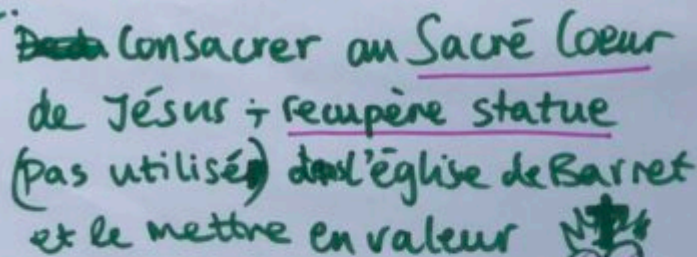 Consacrer au Sacré Coeur
de Jésus + recupère statue
(pas utilisé) dans l'église de Barret
et le mettre en valeur